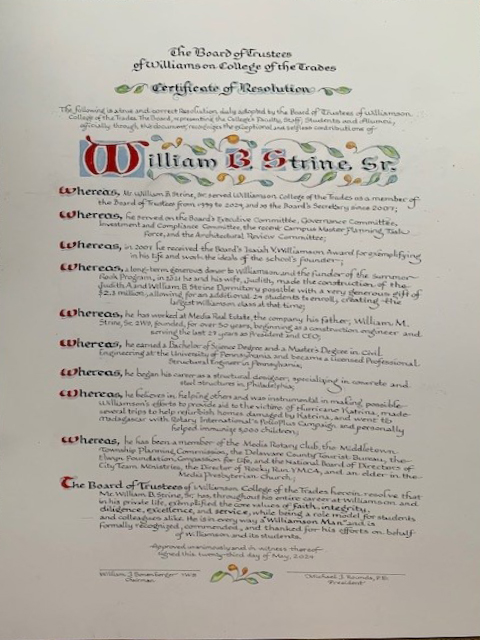 The Board of Trustees
of Williamson College of the Trades
Certificate of Resolution
The following is a true and correct Resolution duly adopted by the Board of Trustees of Williamson
College of the Trades. The Board, representing the College's Faculty, Staff, Students and Alumni,
officially through this document, recognizes the exceptional and selfless contributions of
William B. Strine, Sr.
Whereas, Mr. William B. Strine, Sr. served Williamson College of the Trades as a member of
the Board of Trustees from 1999 to 2024 and as the Board's Secretary since 2007;
Whereas, he served on the Board's Executive Committee, Governance Committee,
Investment and Compliance Committee, the recent Campus Master Planning Task
Force, and the Architectural Review Committee;
Whereas, in 2007 he received the Board's Isaiah V. Williamson Award for exemplifying
in his life and work the ideals of the school's founder;
Whereas, a long-term generous donor to Williamson and the funder of the summer
Rock Program, in 2021 he and his wife, Judith, made the construction of the
Judith A and William B Strine Dormitory possible with a very generous gift of
$2.3 million, allowing for an additional 24 students to enroll, creating the
largest Williamson class at that time;
Whereas, he has worked at Media Real Estate, the company his father, William M.
Strine, Sr. founded, for over 50 years, beginning as a construction engineer and
serving the last 23 years as President and CEO;
Whereas, he earned a Bachelor of Science Degree and a Master's Degree in Civil
Engineering at the University of Pennsylvania, and became a Licensed Professional
Structural Engineer in Pennsylvania;
Whereas, he began his career as a structural designer, specializing in concrete and
steel structures in Philadelphia;
Whereas, he believes in helping others and was instrumental in making possible
Williamson's efforts to provide aid to the victims of Hurricane Katrina, made
several trips to help refurbish homes damaged by Katrina, and went to
Madagascar with Rotary International's PolioPlus Campaign and personally
helped immunize children;
Whereas, he has been a member of the Media Rotary club, the Middletown
Township Planning Commission, the Delaware County Tourist Bureau, the
Elwyn Foundation, Compassion for Life, and the National Board of Directors of
City Team Ministries, the Director of Rocky Run YMCA, and an elder in the
Media Presbyterian Church;
The Board of Trustees of Williamson College of the Trades herein resolve that
Mr. William B. Strine, Sr. has throughout his entire career at Williamson and
in his private life, exemplified the core values of faith, integrity,
diligence, excellence, and service, while being a role model for students
and colleagues alike. He is in every way a "Williamson Man" and is
formally recognized, commended, and thanked for his efforts on behalf
of Williamson and its students.
Approved unanimously and in witness thereof
signed this twenty-third day of May, 2024
William J. Bonenberger
Chairman
Michael J. Rounds, P.E.
President